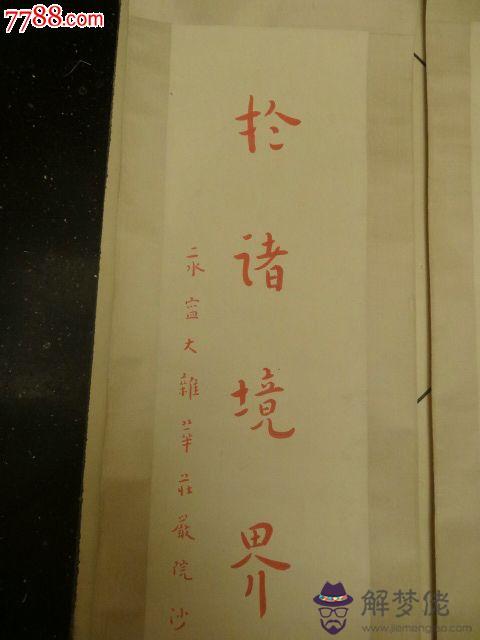 7788.com
於诸境界
永寍大雜華莊嚴院沙
解梦佬
www.jiemenglao.com